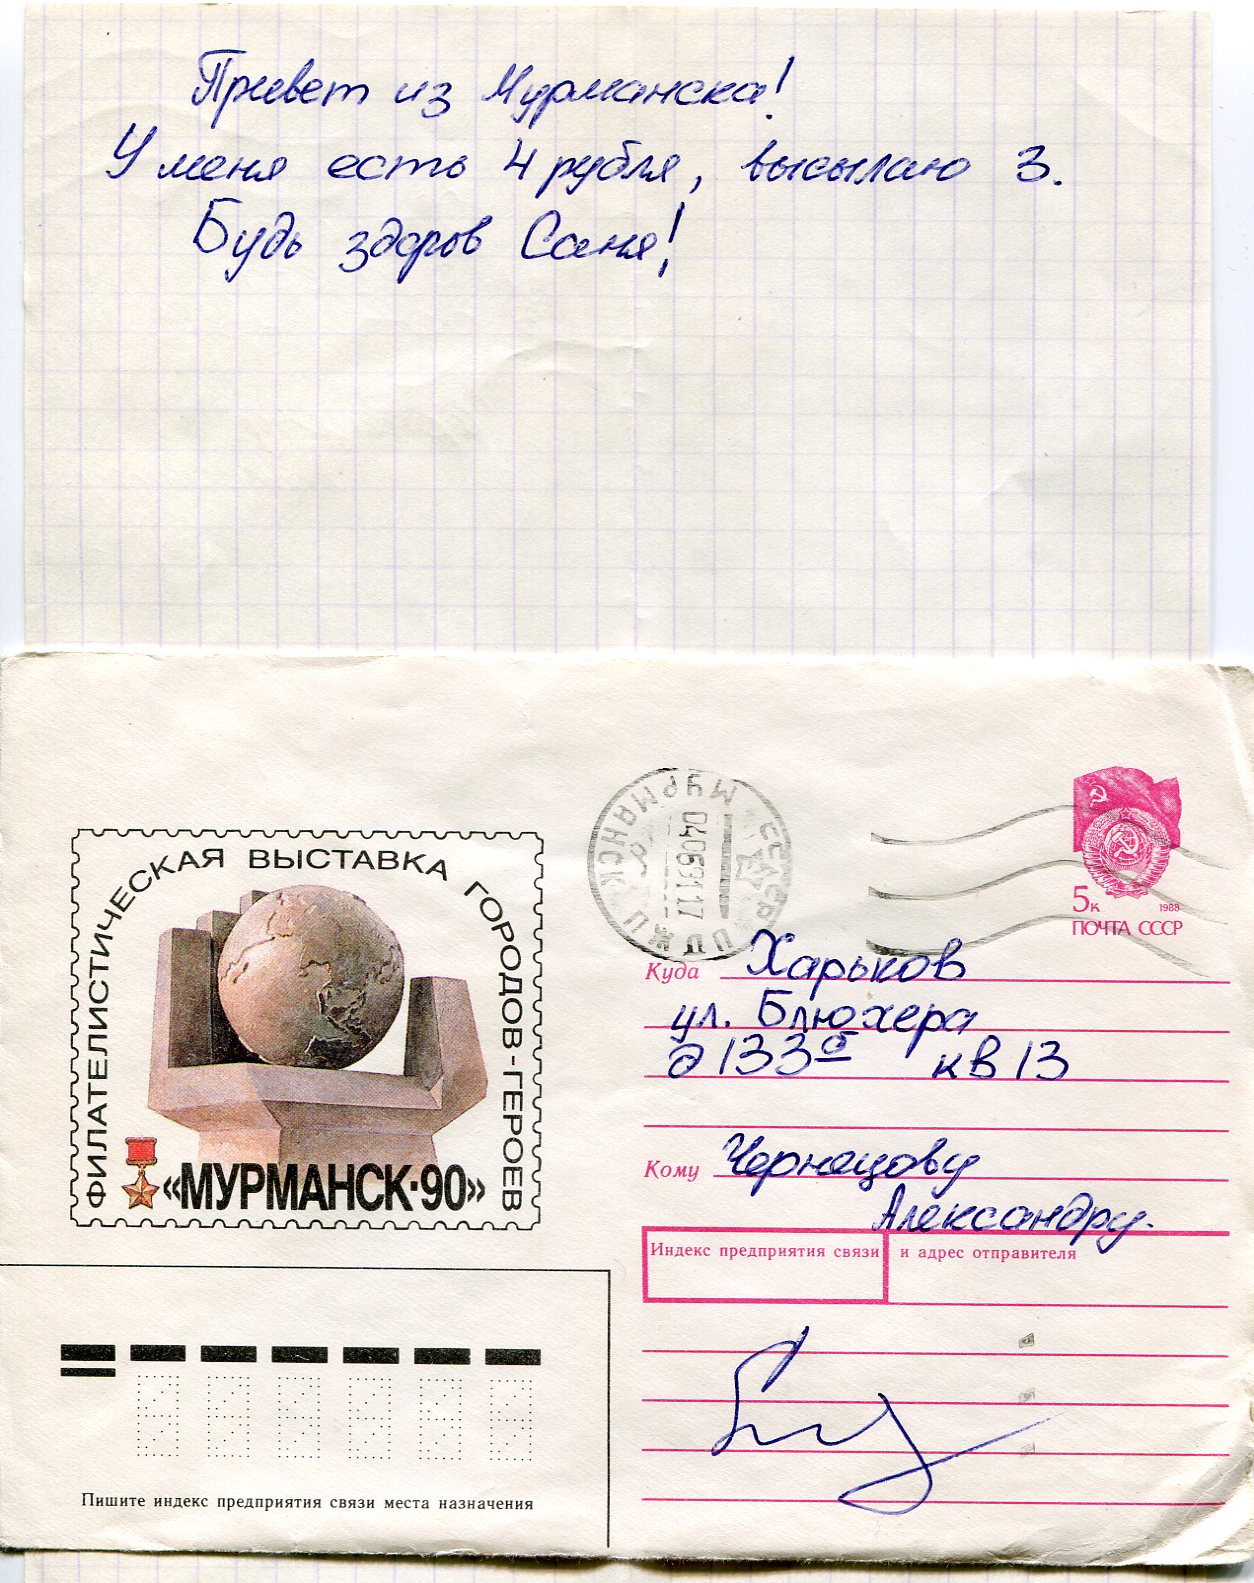 Привет из Мурманска!
У меня есть 4 рубля, высылаю 3.
Будь здоров Саня!
ФИЛАТЕЛИСТИЧЕСКАЯ ВЫСТАВКА ГОРОДОВ-ГЕРОЕВ
«МУРМАНСК·90»
МУРМАНСК ПЖДП
СССР
040691 17
5к
1988
ПОЧТА СССР
Куда Харьков
ул. Блюхера
д 133б кв 13
Кому Чернецову
Александру.
Индекс предприятия связи и адрес отправителя
Пишите индекс предприятия связи места назначения